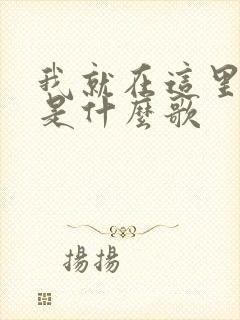 我就在這里
是什麼歌
揚揚